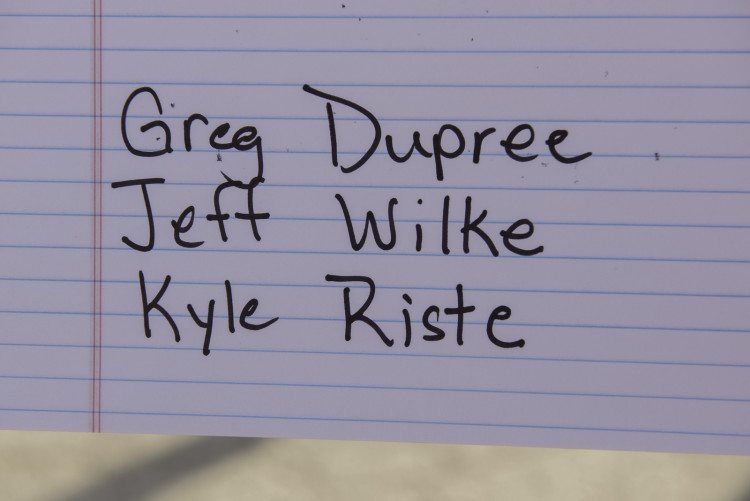 Greg Dupree
Jeff Wilke
Kyle Riste